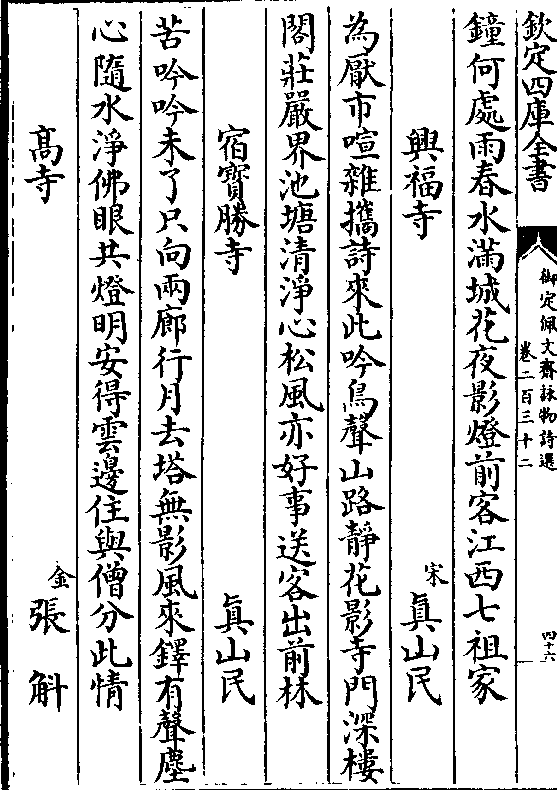 欽定四庫全書
御定佩文齋詠物詩選
卷二百三十二
四十六
鐘何處雨春水滿城花夜影燈前客江西七祖家
興福寺
宋
真山民
為厭市喧雜攜詩來此吟鳥聲山路靜花影寺門深樓
閣莊嚴界池塘清淨心松風亦好事送客出前林
宿寶勝寺
真山民
苦吟吟未了只向兩廊行月去塔無影風來鐸有聲塵
心隨水淨佛眼共燈明安得雲邊住與僧分此情
高寺
金
張斛